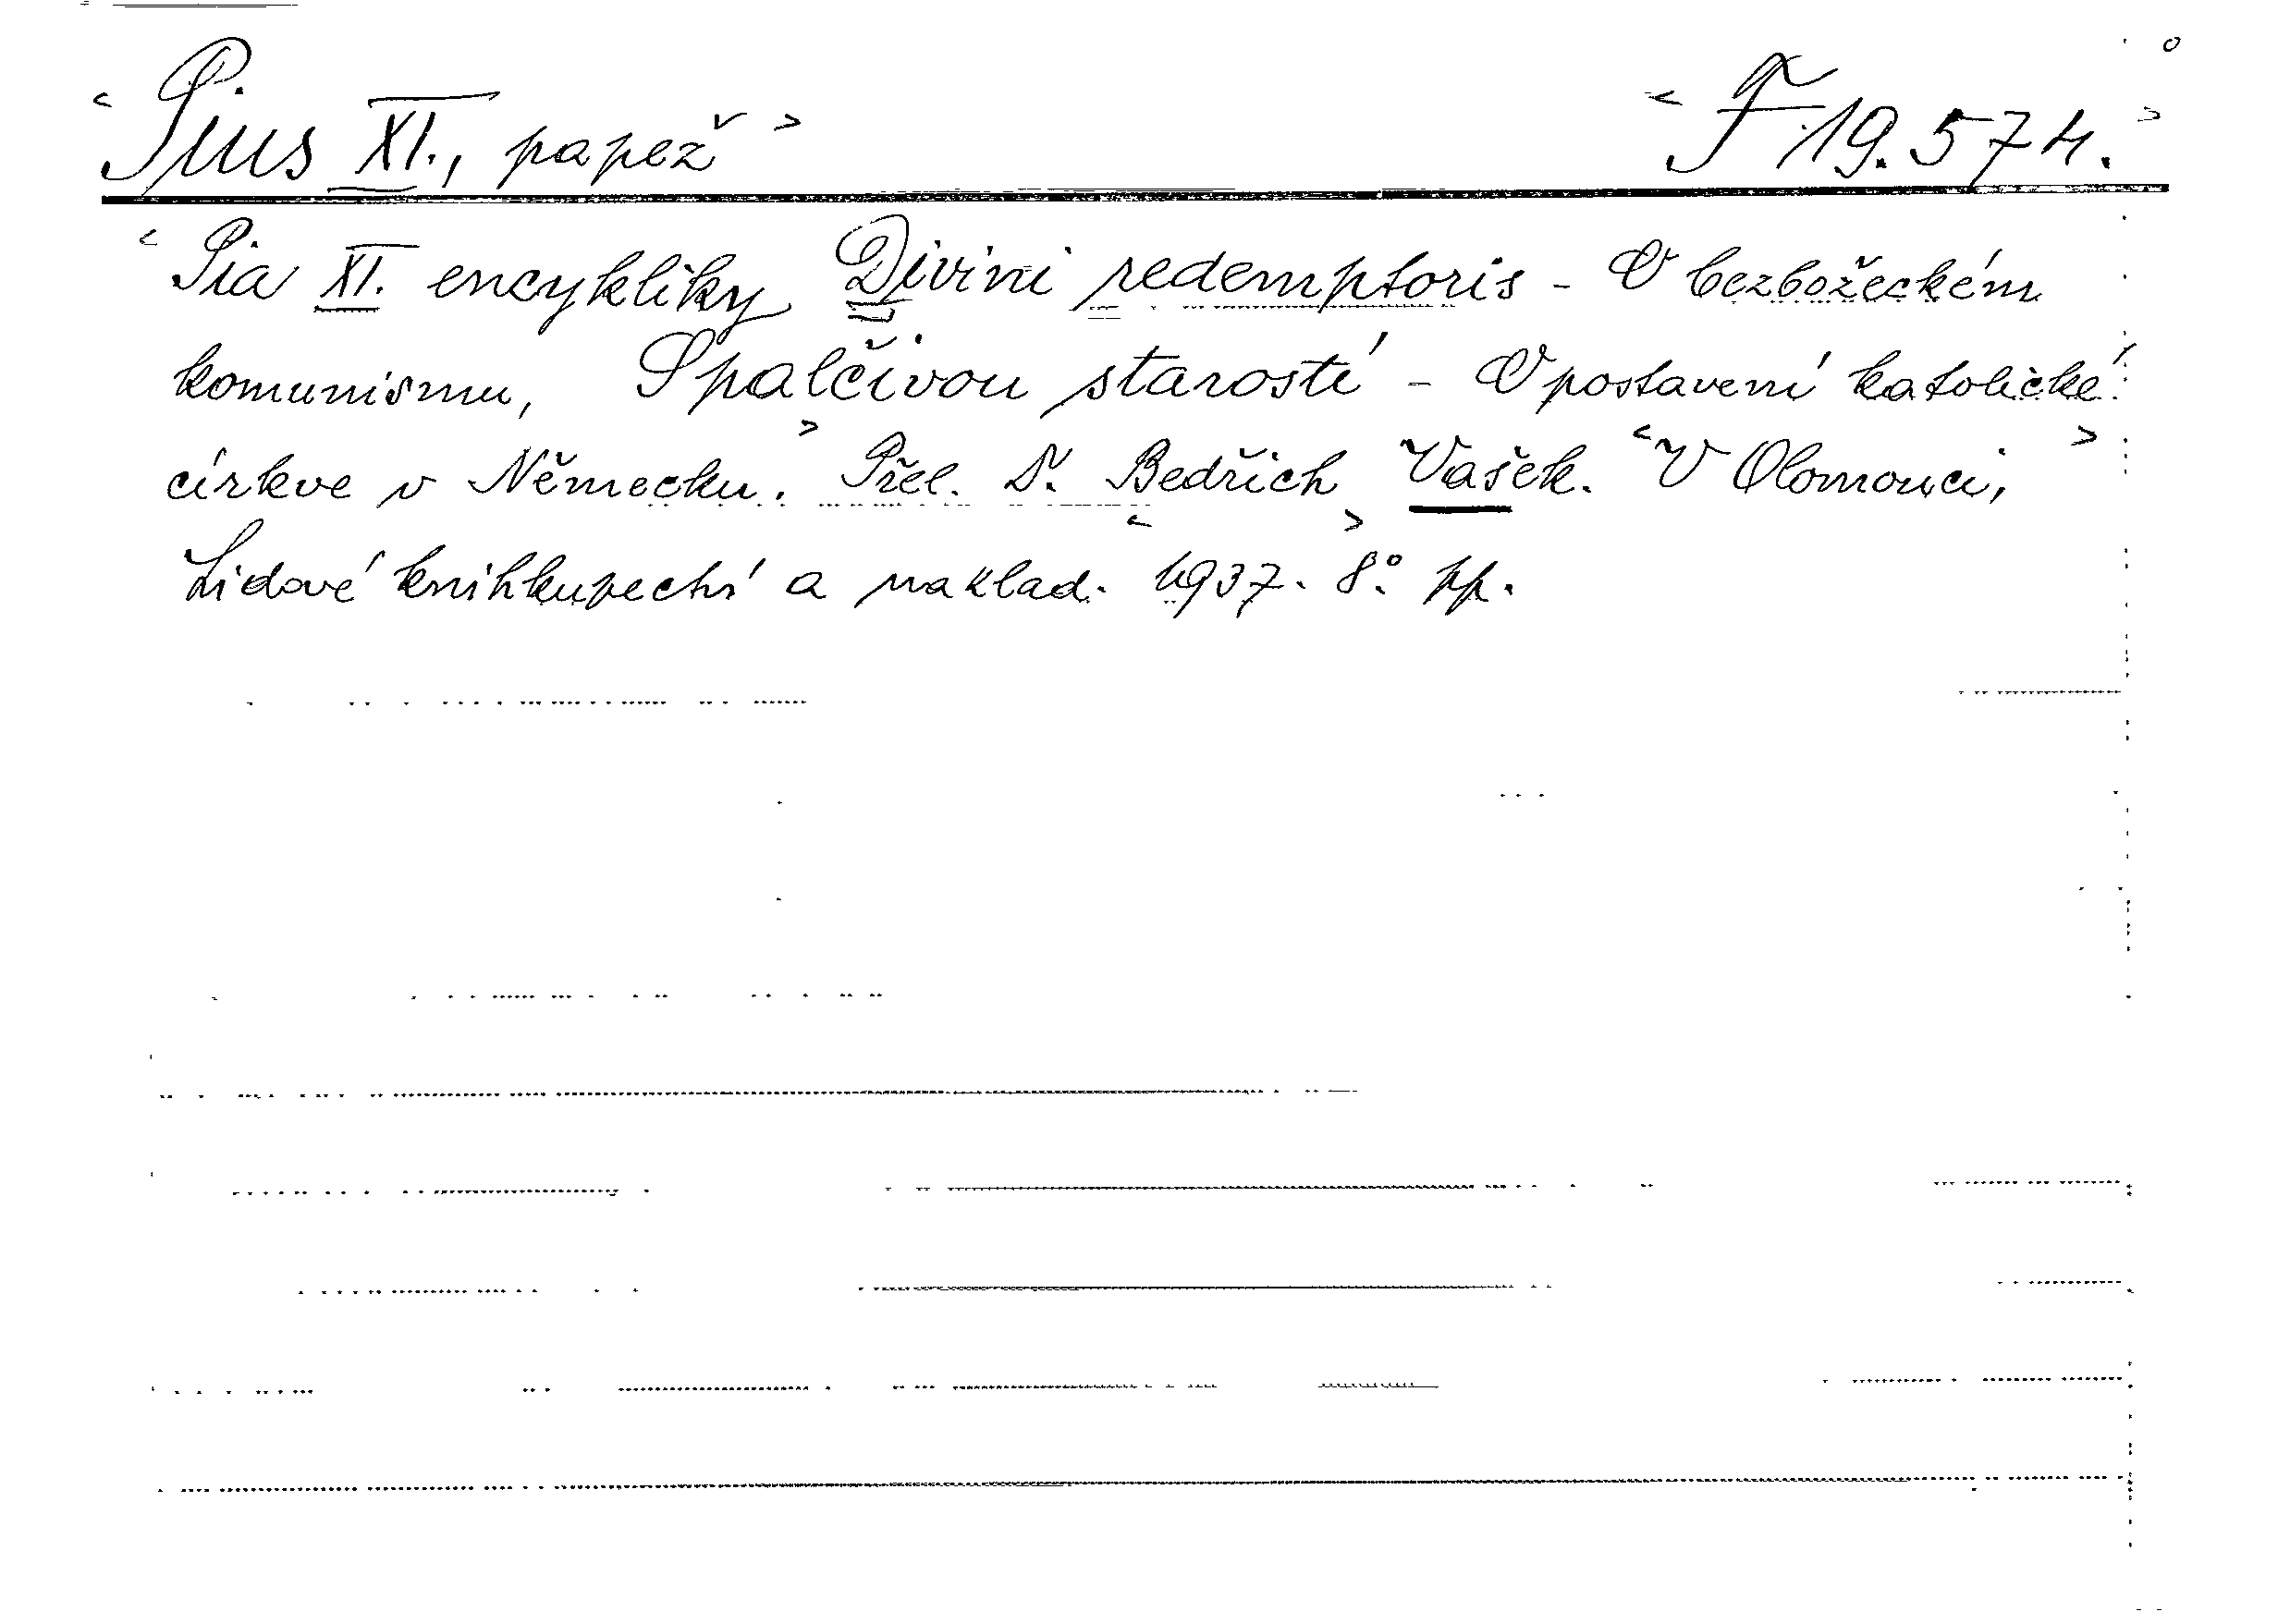 < Pius XI., papež > < F 19.574. >
< Pia XI. encykliky Divini redemptoris - O bezbožeckém
komunismu, Spalčivou starostí - O postavení katolické
církve v Německu. > Přel. Dr. Bedřich Vašek. < V Olomouci, >
Lidové knihkupectví a naklad. < 1937. > 8°. pp.